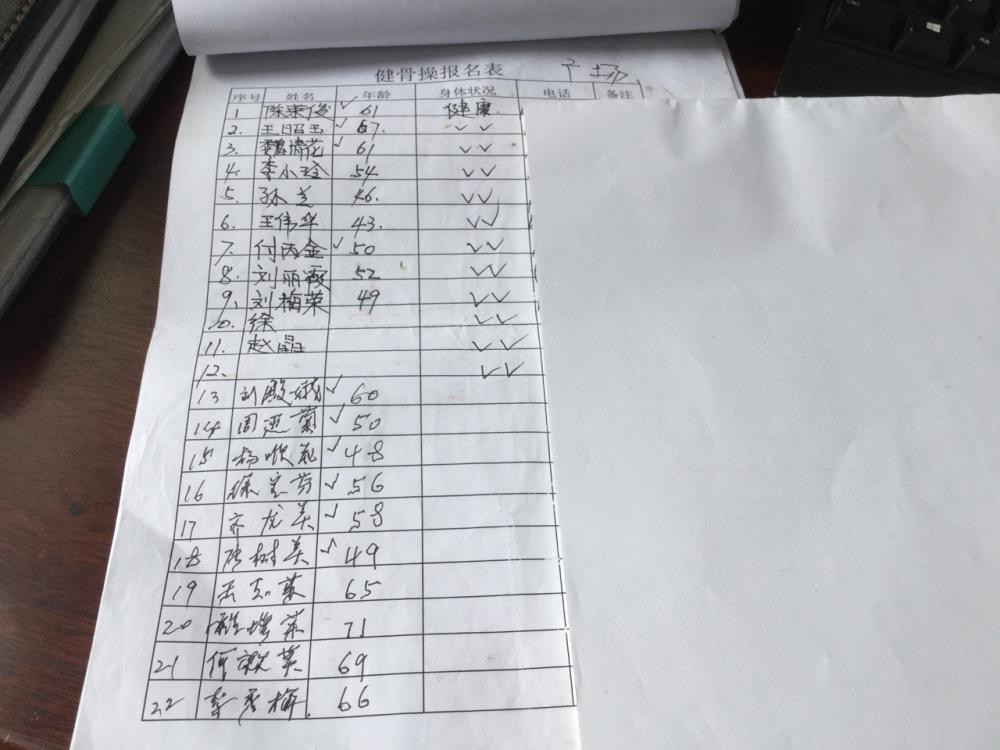 健骨操报名表 广场
序号 姓名 年龄 身体状况 电话 备注
1 陈荣俊 ✓ 61 健康.
2. 王昭玉 ✓ 67. ✓✓
3. 魏清花 ✓ 61 ✓✓
4. 李小玲 54 ✓✓
5. 孙兰 46. ✓✓
6. 王伟华 43. ✓✓
7. 付丙金 ✓ 50 ✓✓
8. 刘丽霞 52 ✓✓
9. 刘梅荣 49 ✓✓
10. 徐 ✓✓
11. 赵晶 ✓✓
12. ✓✓
13 刘殿娥 ✓ 60
14 周迎菊 ✓ 50
15 杨顺花 ✓ 48
16 徐宝芬 ✓ 56
17 齐龙美 ✓ 58
18 唐树美 ✓ 49
19 65
20 71
21 何淑英 69
22 李秀梅. 66